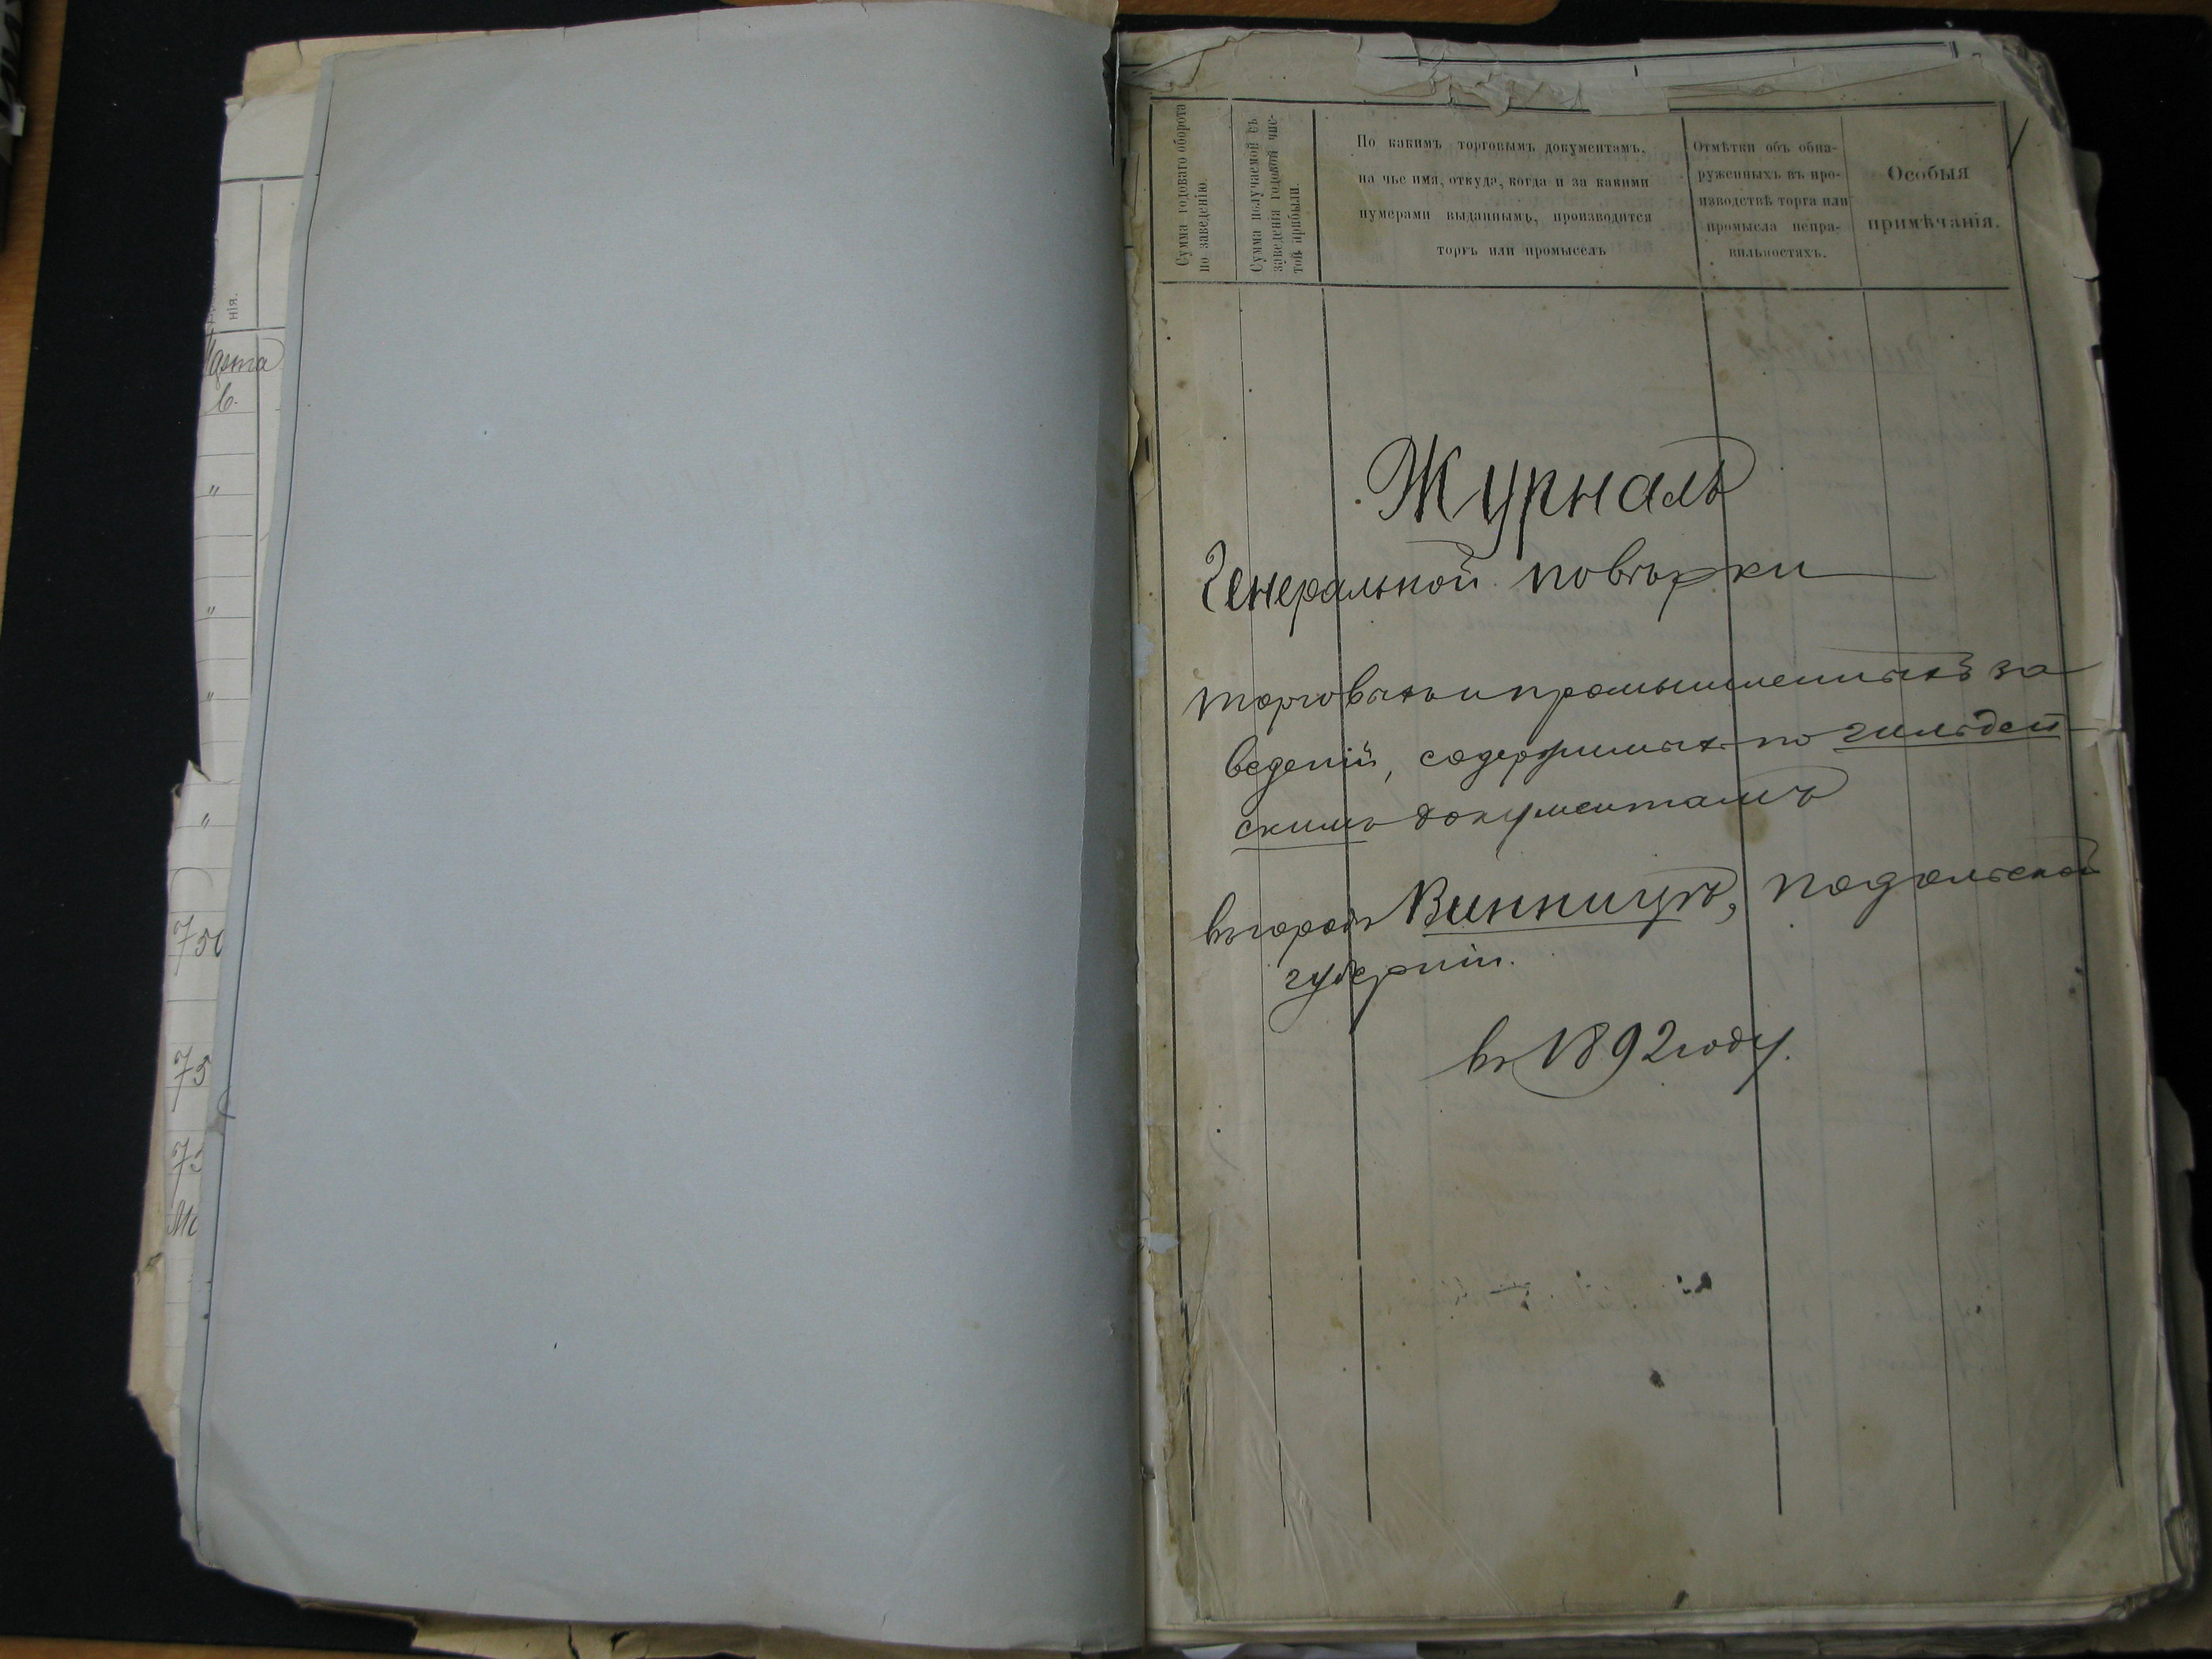 нія.
Марта
в.
"
"
"
"
750
75
75
Сумма годоваго оборота
по заведенію.
Сумма получаемой съ
заведенія годовой чис-
той прибыли.
По какимъ торговымъ документамъ,
на чье имя, откуда, когда и за какими
нумерами выданнымъ, производится
торгъ или промыселъ
Отмѣтки объ обна-
руженныхъ въ про-
изводствѣ торга или
промысла непра-
вильностяхъ.
Особыя
примѣчанія.
Журналъ
Генеральной повѣрки
торговыхъ и промышленныхъ за
веденій, содержимыхъ по гильдей
скимъ документамъ
въ городѣ Винницѣ, Подольской
губерніи.
въ 1892 году.